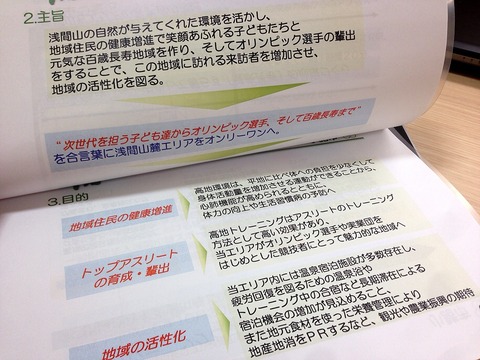 2.主旨
浅間山の自然が与えてくれた環境を活かし、
地域住民の健康増進で笑顔あふれる子どもたちと
元気な百歳長寿地域を作り、そしてオリンピック選手の輩出
をすることで、この地域に訪れる来訪者を増加させ、
地域の活性化を図る。
“次世代を担う子ども達からオリンピック選手、そして百歳長寿まで”
を合言葉に浅間山麓エリアをオンリーワンへ。
3.目的
地域住民の健康増進
高地環境は、平地に比べ体への負担を少なくして
身体活動量を増加させる運動ができることから、
心肺機能が高められるとともに、
体力の向上や生活習慣病の予防へ
トップアスリート
の育成・輩出
高地トレーニングはアスリートのトレーニング
方法として高い効果があり、
当エリアがオリンピック選手や実業団を
はじめとした競技者にとって魅力的な地域へ
地域の活性化
当エリア内には温泉宿泊施設が多数存在し、
疲労回復を図るための温泉浴や
トレーニング中の合宿など長期滞在による
宿泊機会の増加が見込めること、
また地元食材を使った栄養管理により
地産地消をPRするなど、観光や農業振興の期待